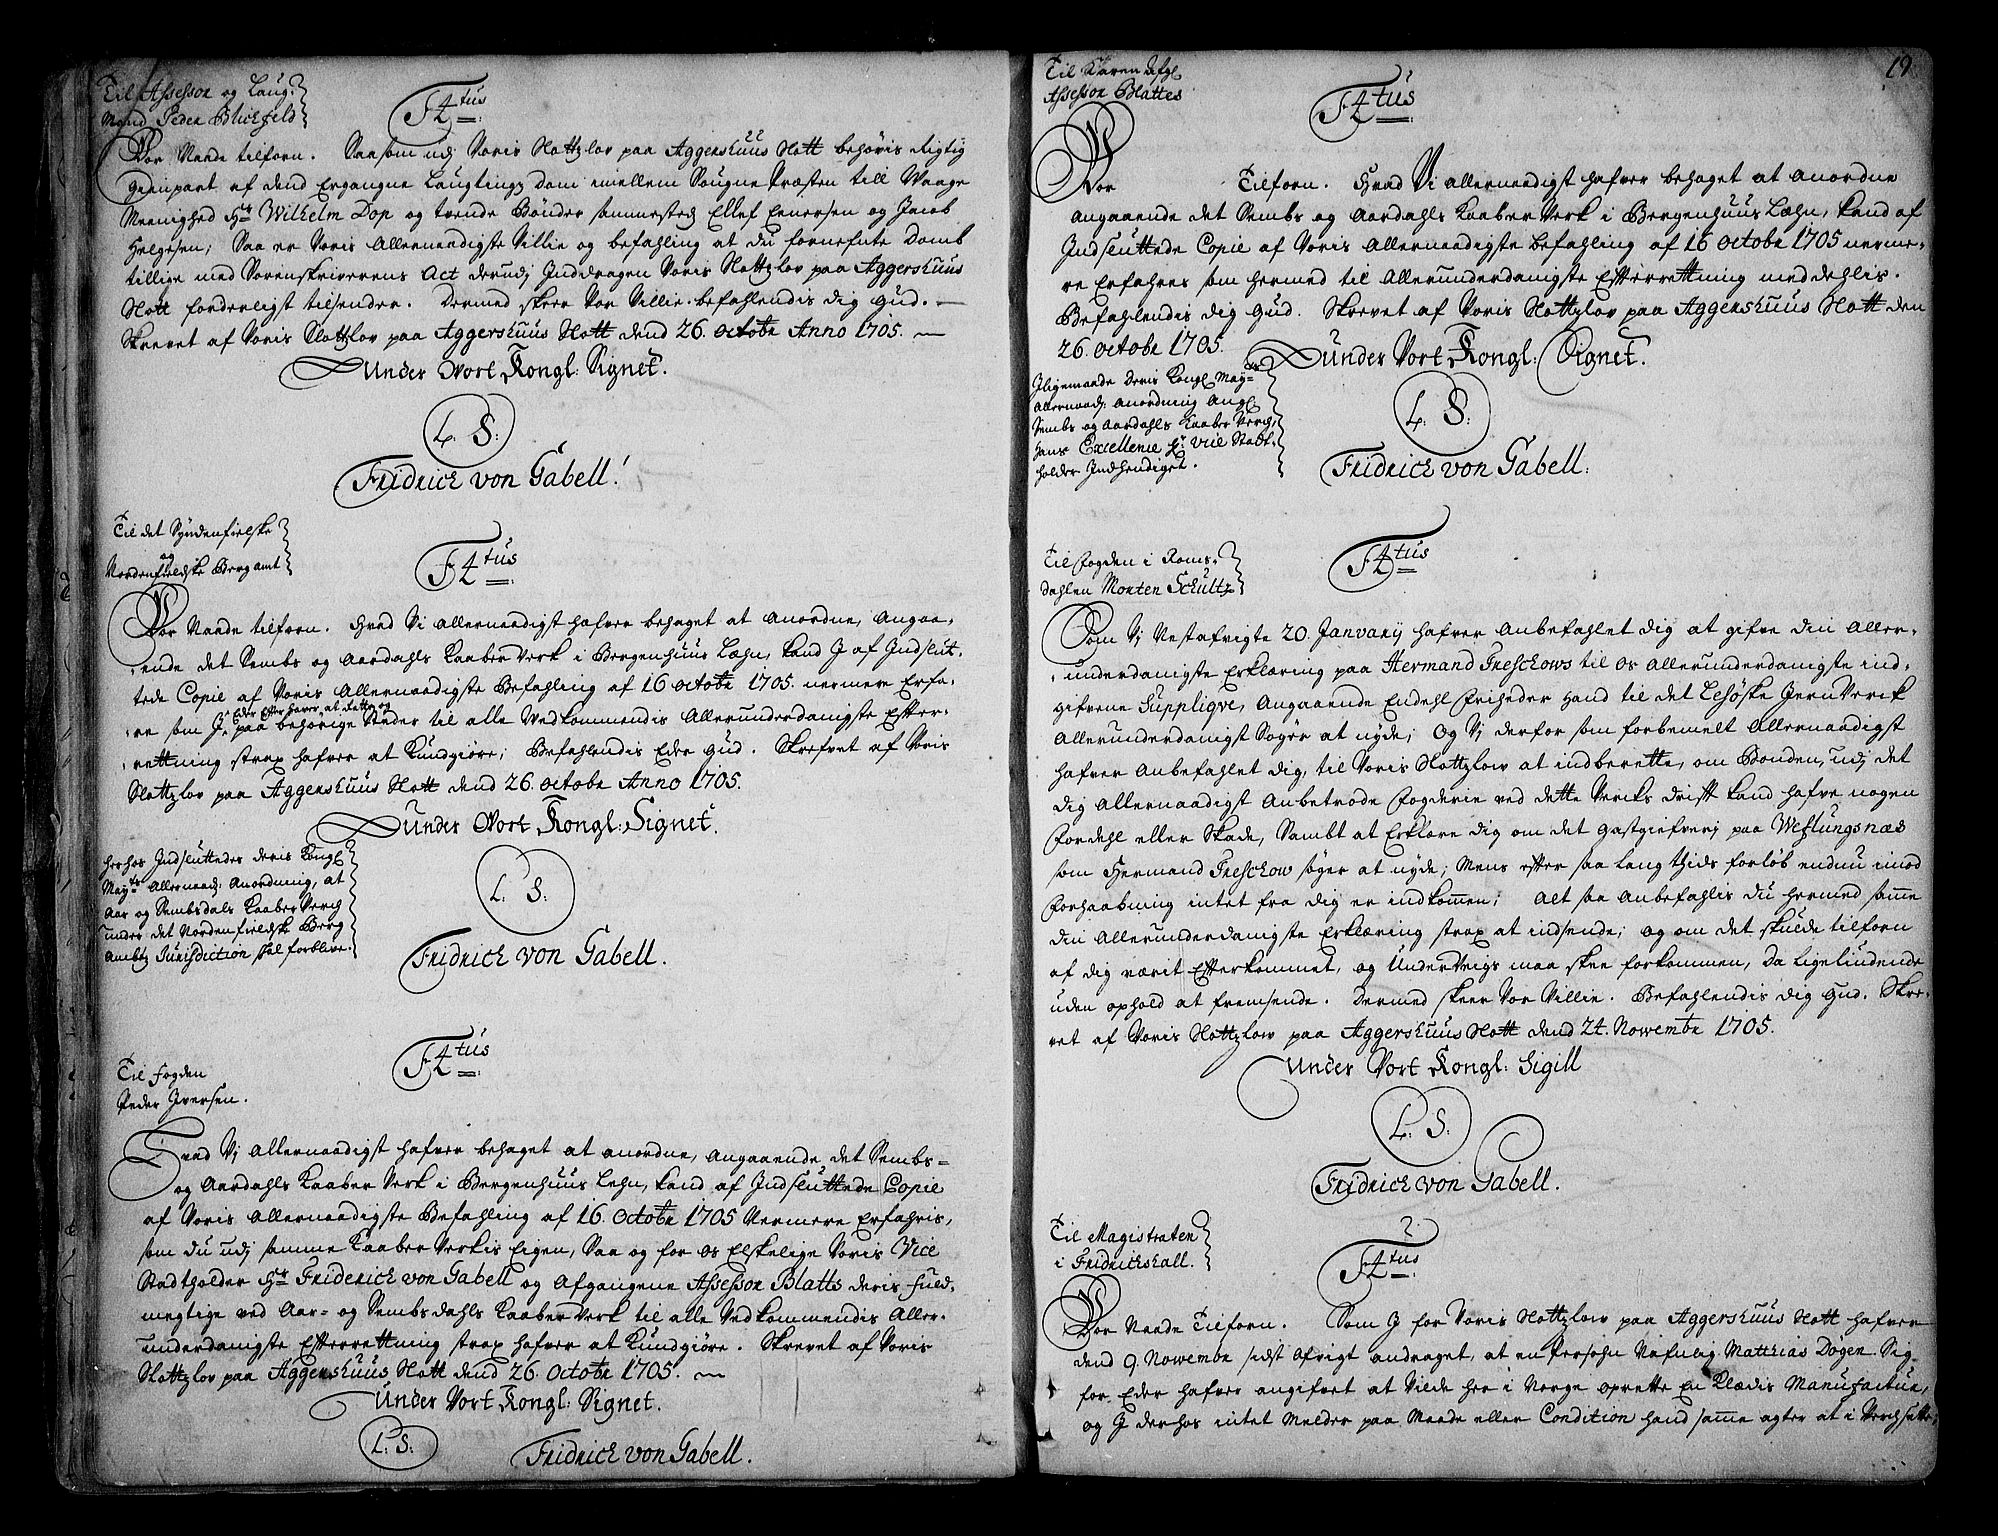 Til Assessor og Laug-
Mand Peder Blichfeld
F4tus
Vor Naade tilforn. Saasom udj Voris Slotzlov paa Aggershuus Slott behøvis Rigtig
Gienpart af dend Ergangne Laugtings dom imellem Sougne Præsten till Waage
Meenighed Hr Wilhelm Dop og tvende Bønder sammested Ellef Enersen og Jacob
Helgesen; Saa er Voris Allernaadigste Villie og befahling at du fornefnte Domb
tillige med Sorenskriverens Act derudj Inddragen Voris Slottzlov paa Aggershuus
Slott forderligst tilsender. Dermed skeer Vor Villie. befahlendis dig Gud.
Skrevet af Voris Slottzlov paa Aggershuus Slott dend 26. octobr Anno 1705.
Under Vort Kongl: Signet.
L. S:
Fridrich von Gabell!
Til det Syndenfielske
og
Nordenfieldske Bergamt
F4tus
Vor Naade tilforn. Hvad Vi Allernaadigst hafver behaget at Anordne, Angaa-
ende det Sembs og Aardahls Kaaber Verk i Bergenhuus Læhn, kand J af Indslut-
tede Copie af Voris Allernaadigste Befahling af 16 octobr 1705. nermere Erfa-
re som J, Eder Efter haver at rette og
paa behørige Steder til alle Vedkommendis Allerunderdanigste Efter-
rettning strax hafver at Kundgiøre; Befahlendis Eder Gud. Skrefvet af Voris
Slottzlov paa Aggershuus Slott dend 26. octobr Anno 1705.
Under Vort Kongl: Signet.
herhos Indsluttedes deris Kongl
Mayts Allernaad: Anordning, at
Aar og Sembsdals Kaaber Verch
under det Nordenfieldske Berg
Ambtz Jurisdiction skal forblive.
L. S:
Fridrich von Gabell.
Til Fogden
Peder Iversen.
F4tus
Hvad Vj Allernaadigst hafver behaget at anordne, angaaende det Sembs-
og Aardahls Kaaber Verk i Bergenhuus Lehn, kand af Indsluttede Copie
af Voris Allernaadigste Befahling af 16. Octobr 1705 Nermere Erfahris,
som du udj samme Kaaber Verkis Eigen, Saa og for os Elskelige Voris Vice
Stadtholder Hr Friderich von Gabell og Afgangene Assessor Blatts deris fuld-
megtige ved Aar- og Sembsdahls Kaaber Verk til alle Vedkommendis Aller-
underdanigste Efterrettning strax hafver at Kundgiøre. Skrevet af Voris
Slottzlov paa Aggershuus Slott dend 26. Octobr 1705.
Under Vort Kongl: Signet.
L: S:
Fridrich von Gabell.
19
Til Karen Afgl
Assessor Blattes
F4tus
Vor Tilforn. Hvad Vi Allernaadigst hafver behaget at Anordne
Angaaende det Sembs og Aardahls Kaaber Verk i Bergenhuus Læhn, kand af
Indsluttede Copie af Voris Allernaadigste Befahling af 16 octobr 1705 nerme-
re Erfahres som hermed til Allerunderdanigste Efterrettning meddehlis.
Befahlendis dig Gud. Skrevet af Voris Slottzlov paa Aggershuus Slott den
26. octobr 1705.
Under Vort Kongl: Signet.
Iligemaade Deris Kongl May-ts
Allernaad: Anordning Angl
Sembs og Aardahls Kaaber Verch,
hans Excellence Hr Vice Stadt-
holder Indhendiget.
L. S:
Fridrich von Gabell:
Til Fogden i Roms-
dahlen Morten Schultz
F4tus
Som Vj Nestafvigte 20. January hafver Anbefahlet dig at gifve din Aller-
underdanigste Erklæring paa Hermand Treschows til os Allerunderdanigste ind-
gifvene Supplique, Angaaende Endehl Friheder Hand til det Lesøske Jern Verck
Allerunderdanigst Søger at nyde; Og Vj derfor som forbemelt Allernaadigst
hafver Anbefahlet dig, til Voris Slottzlow at indberette, om Bonden, udj det
dig Allernaadigst Anbetrode Fogderie ved dette Verchs drift kand hafve nogen
Fordehl eller Skade, Sambt at Erklære dig om det Gastgiefverj paa Weslungsnæs
som Hermand Treschow søger at nyde; Mens efter saa Lang thids forløb endnu imod
Forhaabning intet fra dig er indkommen; Alt saa Anbefahlis du hermed samme
din Allerunderdanigste Erklæring strax at indsende; og om det skulde tilforn
af dig værit Efterkommet, og Underveigs maa skee forkommen, Da Ligelindende
uden ophold at fremsende. Dermed skeer Vor Villie. Befahlendis dig Gud. Skre-
vet af Voris Slottzlow paa Aggershuus Slott dend 24. Novembr 1705.
Under Vort Kongl: Sigill
L: S:
Fridrich von Gabell.
Til Magistraten
i Fridrichshall.
F4tus
Vor Naade Tilforn. Som J for Voris Slottzlow paa Aggershuus Slott hafver
dend 9. Novembr sidst Afvigt andraget, at en Persohn Nafnlig Matthias Døgen Sig
for Eder hafver angifvet at Vilde her i Norge oprette En Klædis Manufactur,
og J derhos intet Melder paa Maade eller Condition hand samme agter at i Verchsette,